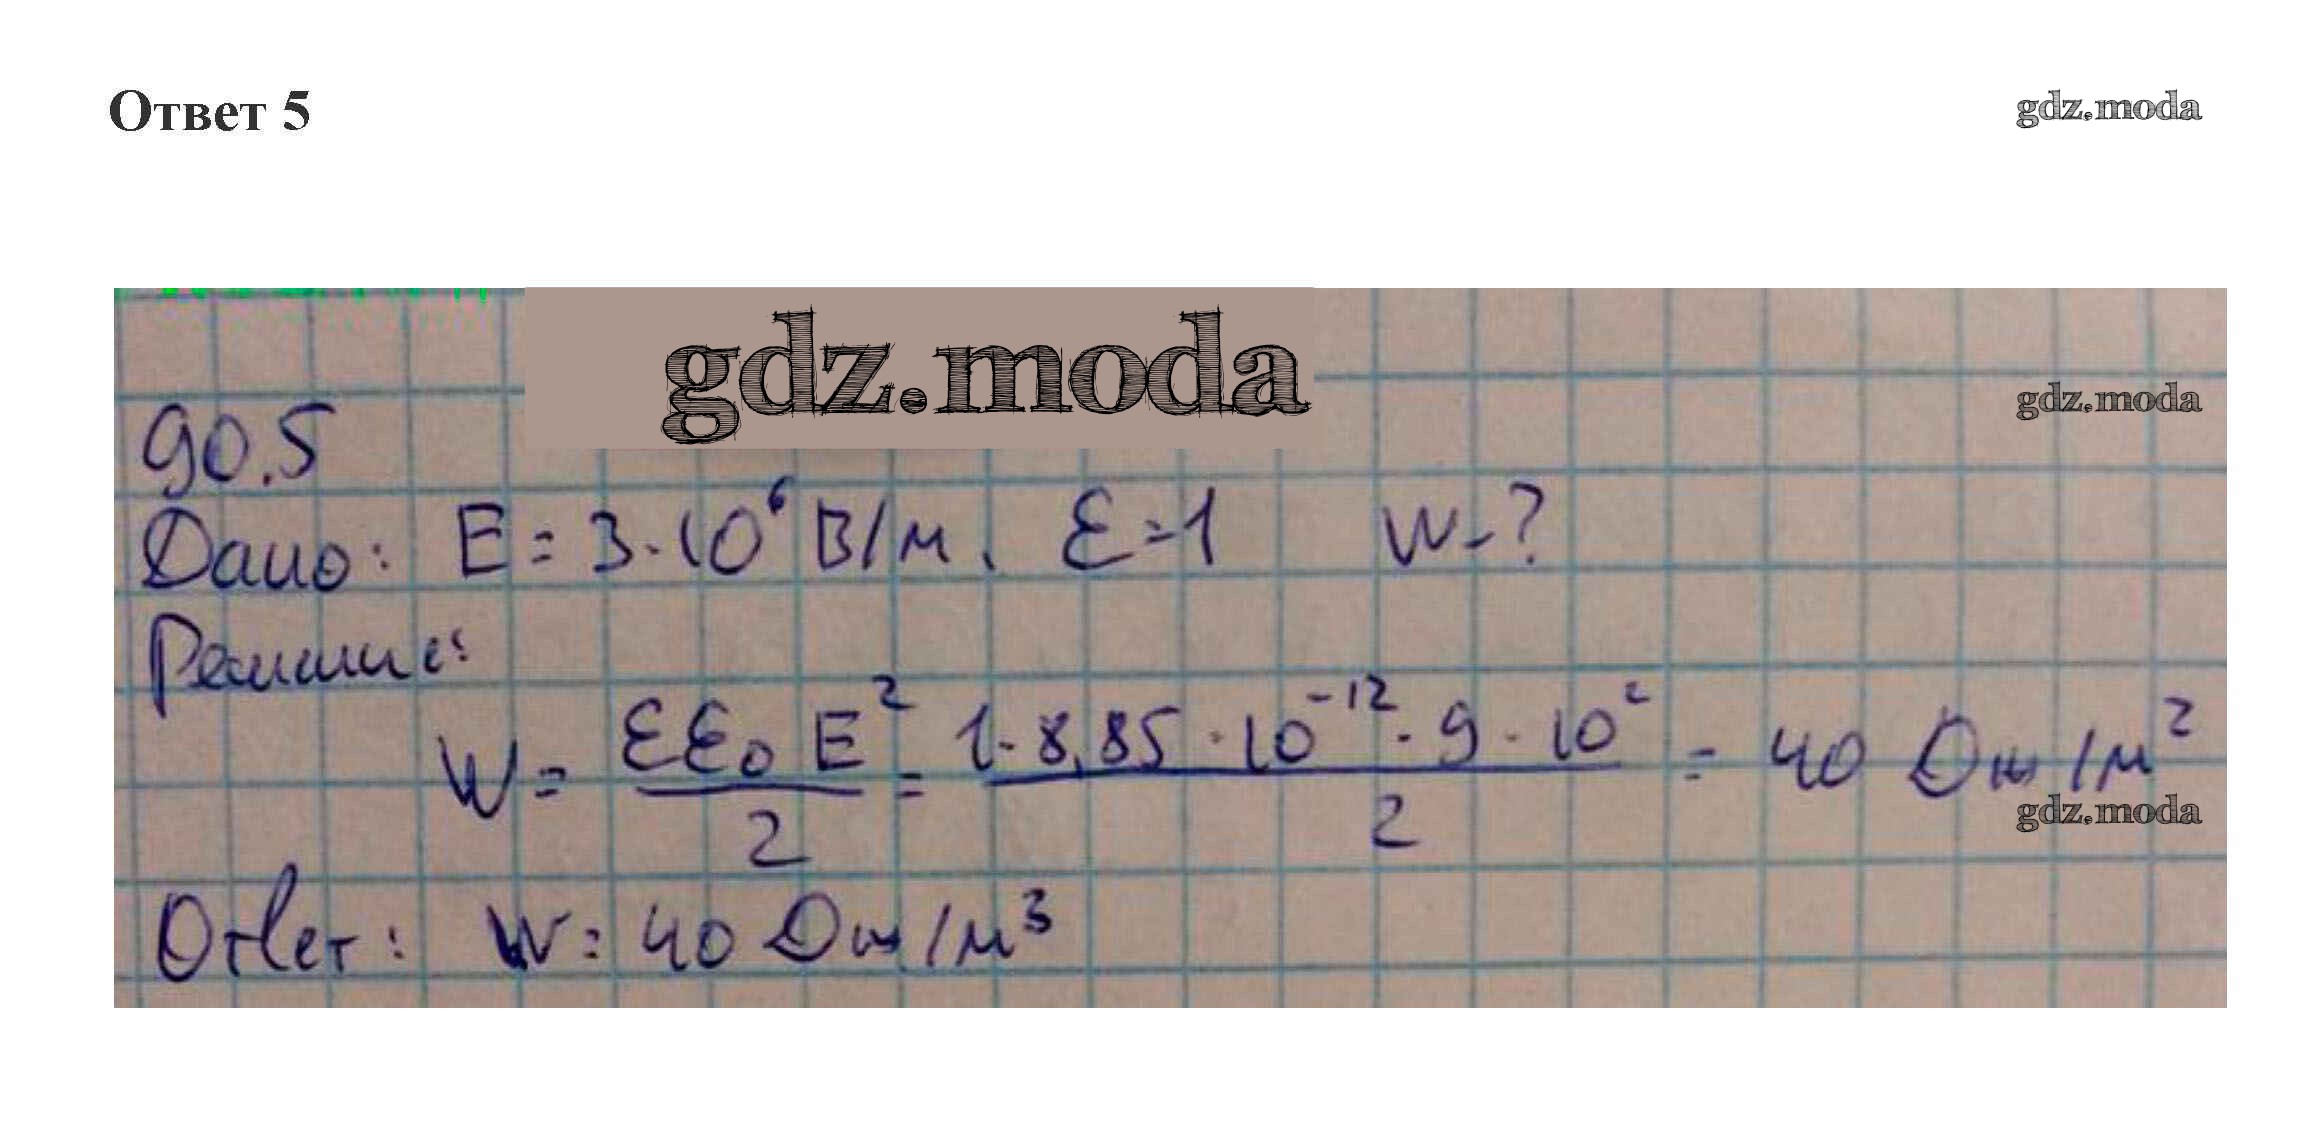 Ответ 5
gdz.moda
gdz.moda
90.5
gdz.moda
Дано: E = 3·10⁶ В/м, ε=1 W-?
Решение:
W = εε₀E²/2 = 1·8,85·10⁻¹²·9·10²/2 = 40 Дж/м²
gdz.moda
Ответ: W = 40 Дж/м³